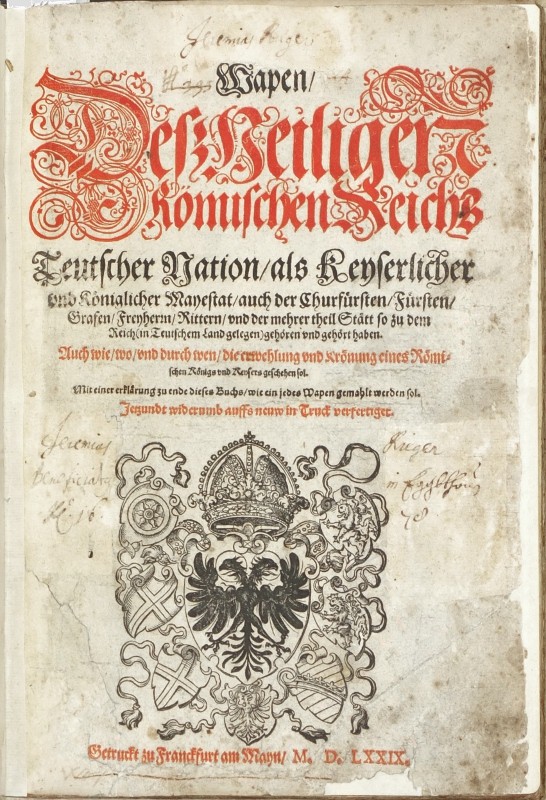 Jeremias
Wapen/
Desz Heiligen
Römischen Reichs
Teutscher Nation/als Keyserlicher
vnd Königlicher Mayestat/auch der Churfürsten/Fürsten/
Grafen/Freyherrn/Rittern/vnd der mehrer theil Stätt so zu dem
Reich(in Teutschem Land gelegen)gehören vnd gehört haben.
Auch wie/wo/vnd durch wen/die erwehlung vnd Krönung eines Römi-
schen Königs vnd Keysers geschehen sol.
Mit einer erklärung zu ende dieses Buchs/wie ein jedes Wapen gemahlt werden sol.
Jetzundt widerumb auffs neuw in Truck verfertiget.
Jeremias
Kruger
in
78
Getruckt zu Franckfurt am Mayn/ M. D. LXXIX.